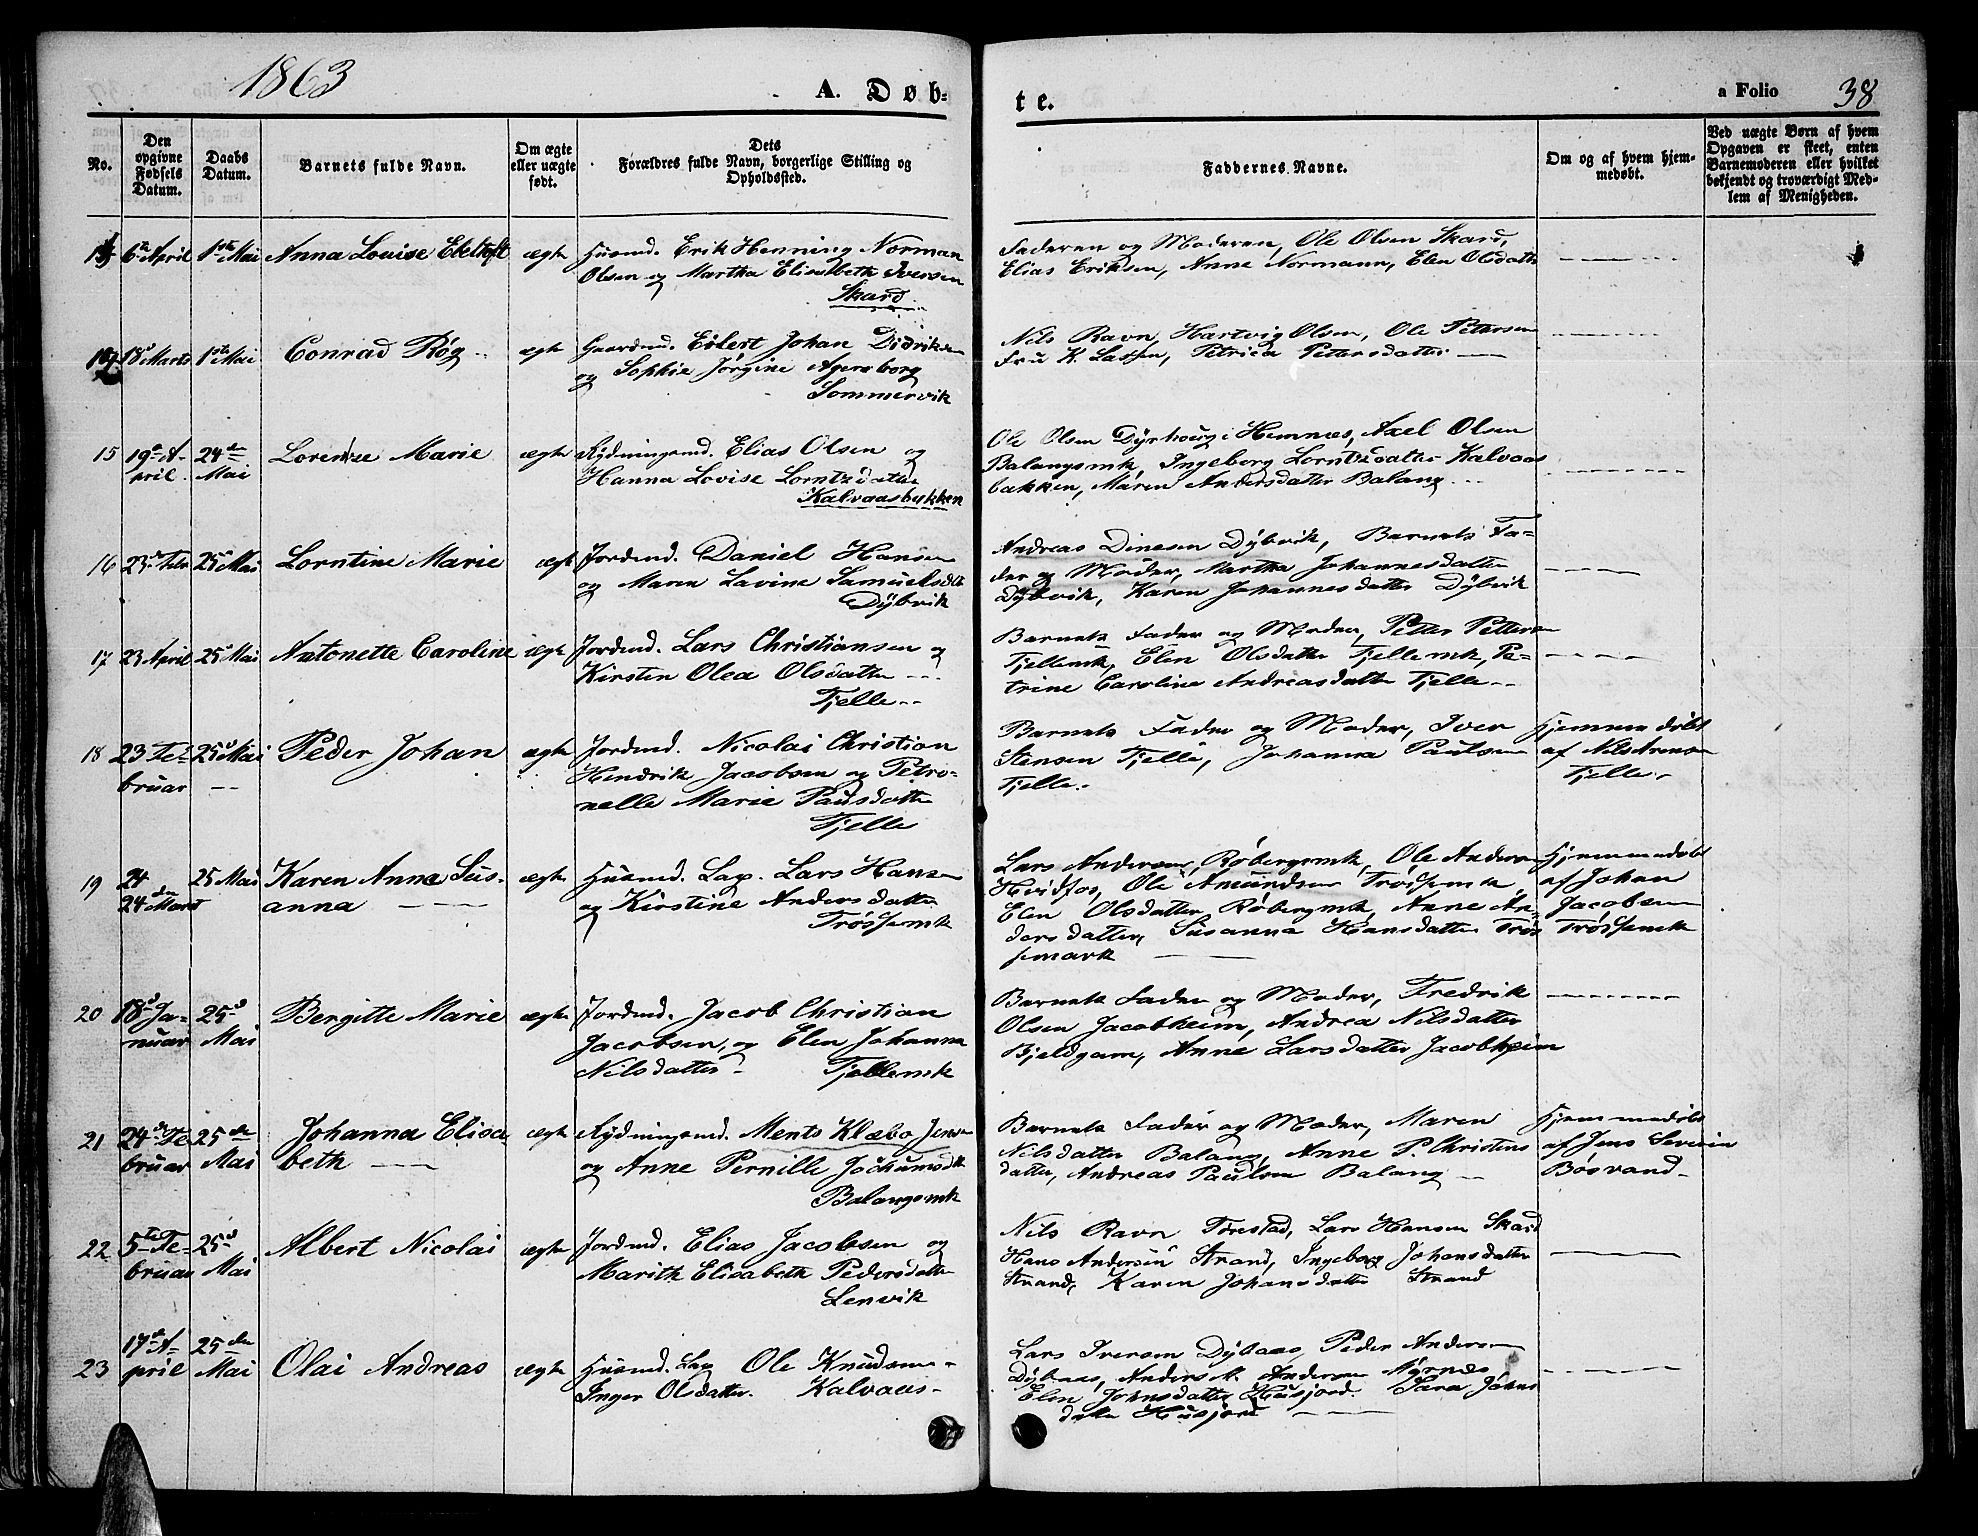 1863
A. Døb-
te.
a Folio 38
No.
Den
opgivne
Fødsels
Datum.
Daabs
Datum.
Barnets fulde Navn.
Om ægte
eller uægte
født.
Dets
Forældres fulde Navn, borgerlige Stilling og
Opholdssted.
Faddernes Navne.
Om og af hvem hjem-
medøbt.
Ved uægte Børn af hvem
Opgaven er skeet, enten
Barnemoderen eller hvilket
bekjendt og troværdigt Med-
lem af Menigheden.
6te April 1ste Mai Anna Louise Ekeltoft ægte Huusmd. Erik Henning Norman
Olsen og Martha Elisabeth Iversen
Skard
Faderen og Moderen, Ole Olsen Skard,
Elias Eriksen, Anne Normann, Elen Olsdatter
18d Marts 1ste Mai Conrad Røg ægte Gaardmd. Eilert Johan Didriksen
og Sophie Jørgine Agersborg
Sommervik
Nils Ravn, Hartvig Olsen, Ole Petersen
Fru K. Lassen, Petrica Petersdatter
15 19de A- 24de Lorentze Marie ægte Rydningsmd. Elias Olsen og
pril. Mai Hanna Lovise Lorntzdatter
Kalvaasbakken
Ole Olsen Dyrhaug i Hemnæs, Axel Olsen
Balangsmk, Ingeborg Lorntzdatter Kalvaas
bakken, Maren Andersdatter Balang
16 23de Febr 25d Mai Lorntine Marie ægte Jordmd. Daniel Hansen
og Maren Lavine Samuelsdtr
Dybvik
Andreas Dinesen Dybvik, Barnets Fa-
der og Moder, Martha Johannesdatter
Dybvik, Karen Johannesdatter Dybvik
17 23 April 25d Mai Antonette Caroline ægte Jordmd. Lars Christiansen og
Kirsten Olea Olsdatter
Fjelle
Barnets Fader og Moder, Petter Pettersen
Fjellemk, Elen Olsdatter Fjellemk, Pe-
trine Caroline Andreasdatter Fjelle
18 23 Fe- 25d Mai Peder Johan ægte Jordmd. Nicolai Christian
bruar Hendrik Jacobsen og Petro-
nelle Marie Paulsdatter
Fjelle
Barnets Fader og Moder, Iver
Stensen Fjelle, Johanna Paulsen
Fjelle.
Hjemmedøbt
af Nils Arensen
Fjelle.
19 24 25 Mai Karen Anna Sus- ægte Huusmd. Lap. Lars Hansen
24de Marts anna og Kirstine Andersdatter
Trøssemk
Lars Andersen, Røbergsmk, Ole Andersen
Hvidfos, Ole Amundsen Trøssemk
Elen Olsdatter Røbergmk, Anne An-
dersdatter, Susanna Hansdatter Trøs
semark
Hjemmedøbt
af Johan
Jacobsen
Trøssemk
20 18d Ja- 25d Bergitte Marie ægte Jordmd. Jacob Christian
nuar Mai Jacobsen, og Elen Johanna
Nilsdatter Fjellemk
Barnets Fader og Moder, Fredrik
Olsen Jacobheim, Andrea Nilsdatter
Bjeldgam, Anne Larsdatter Jacobheim
21 24de Fe 25de Johanna Elisa ægte Rydningsmd. Ments Klæbo Jensen
bruar Mai beth og Anne Pernille Jochumsdtr
Balangsmk
Barnets Fader og Moder, Maren
Nilsdatter Balang, Anne P. Christens
datter, Andreas Paulsen Balang
Hjemmedøbt
af Jens Severin
Bøsvand
22 5te Fe- 25d Albert Nicolai ægte Jordmd. Elias Jacobsen og
bruar Mai Marith Elisabeth Pedersdatter
Lenvik
Nils Ravn Forstad, Lars Hansen Skard
Hans Andersen Strand, Ingeborg Johansdatter
Strand, Karen Johansdatter Strand
17de A- 25de
23 pril Mai Olai Andreas ægte Huusmd. Lap Ole Knudsen
Inger Olsdatter. Kalvaas
Lars Iversen Dybaas, Peder Andersen
Dybaas, Anders N. Andersen Myrnæs
Elen Johnsdatter Husjord. Sara Johns
datter Husjord